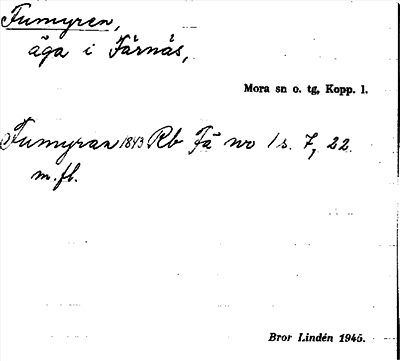 Tumyren,
äga i Färnäs,
Mora sn o. tg, Kopp. l.
Tumyran 1843 Rb Fä no 1 s. 7, 22
m.fl.
Bror Lindén 1945.